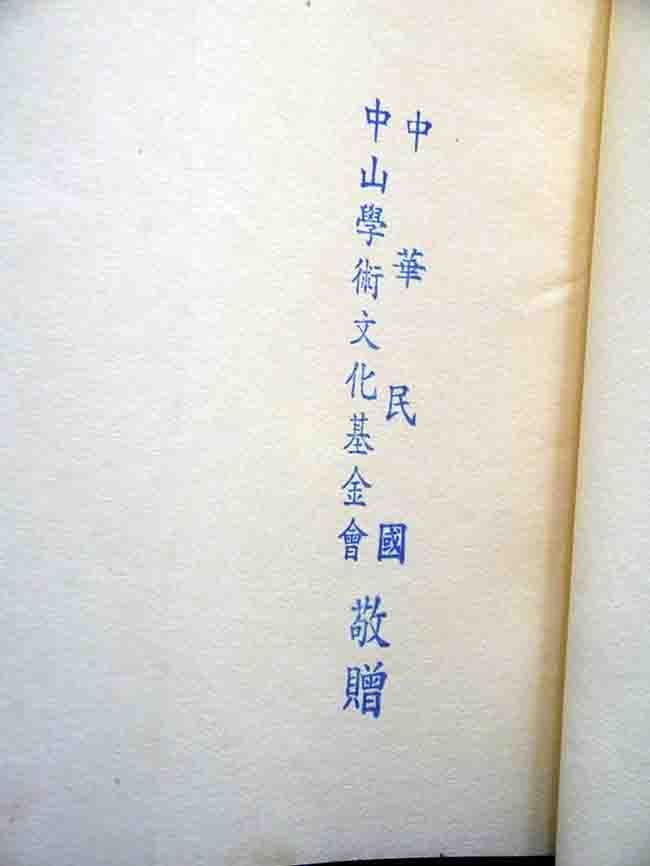 中華民國
中山學術文化基金會
敬贈